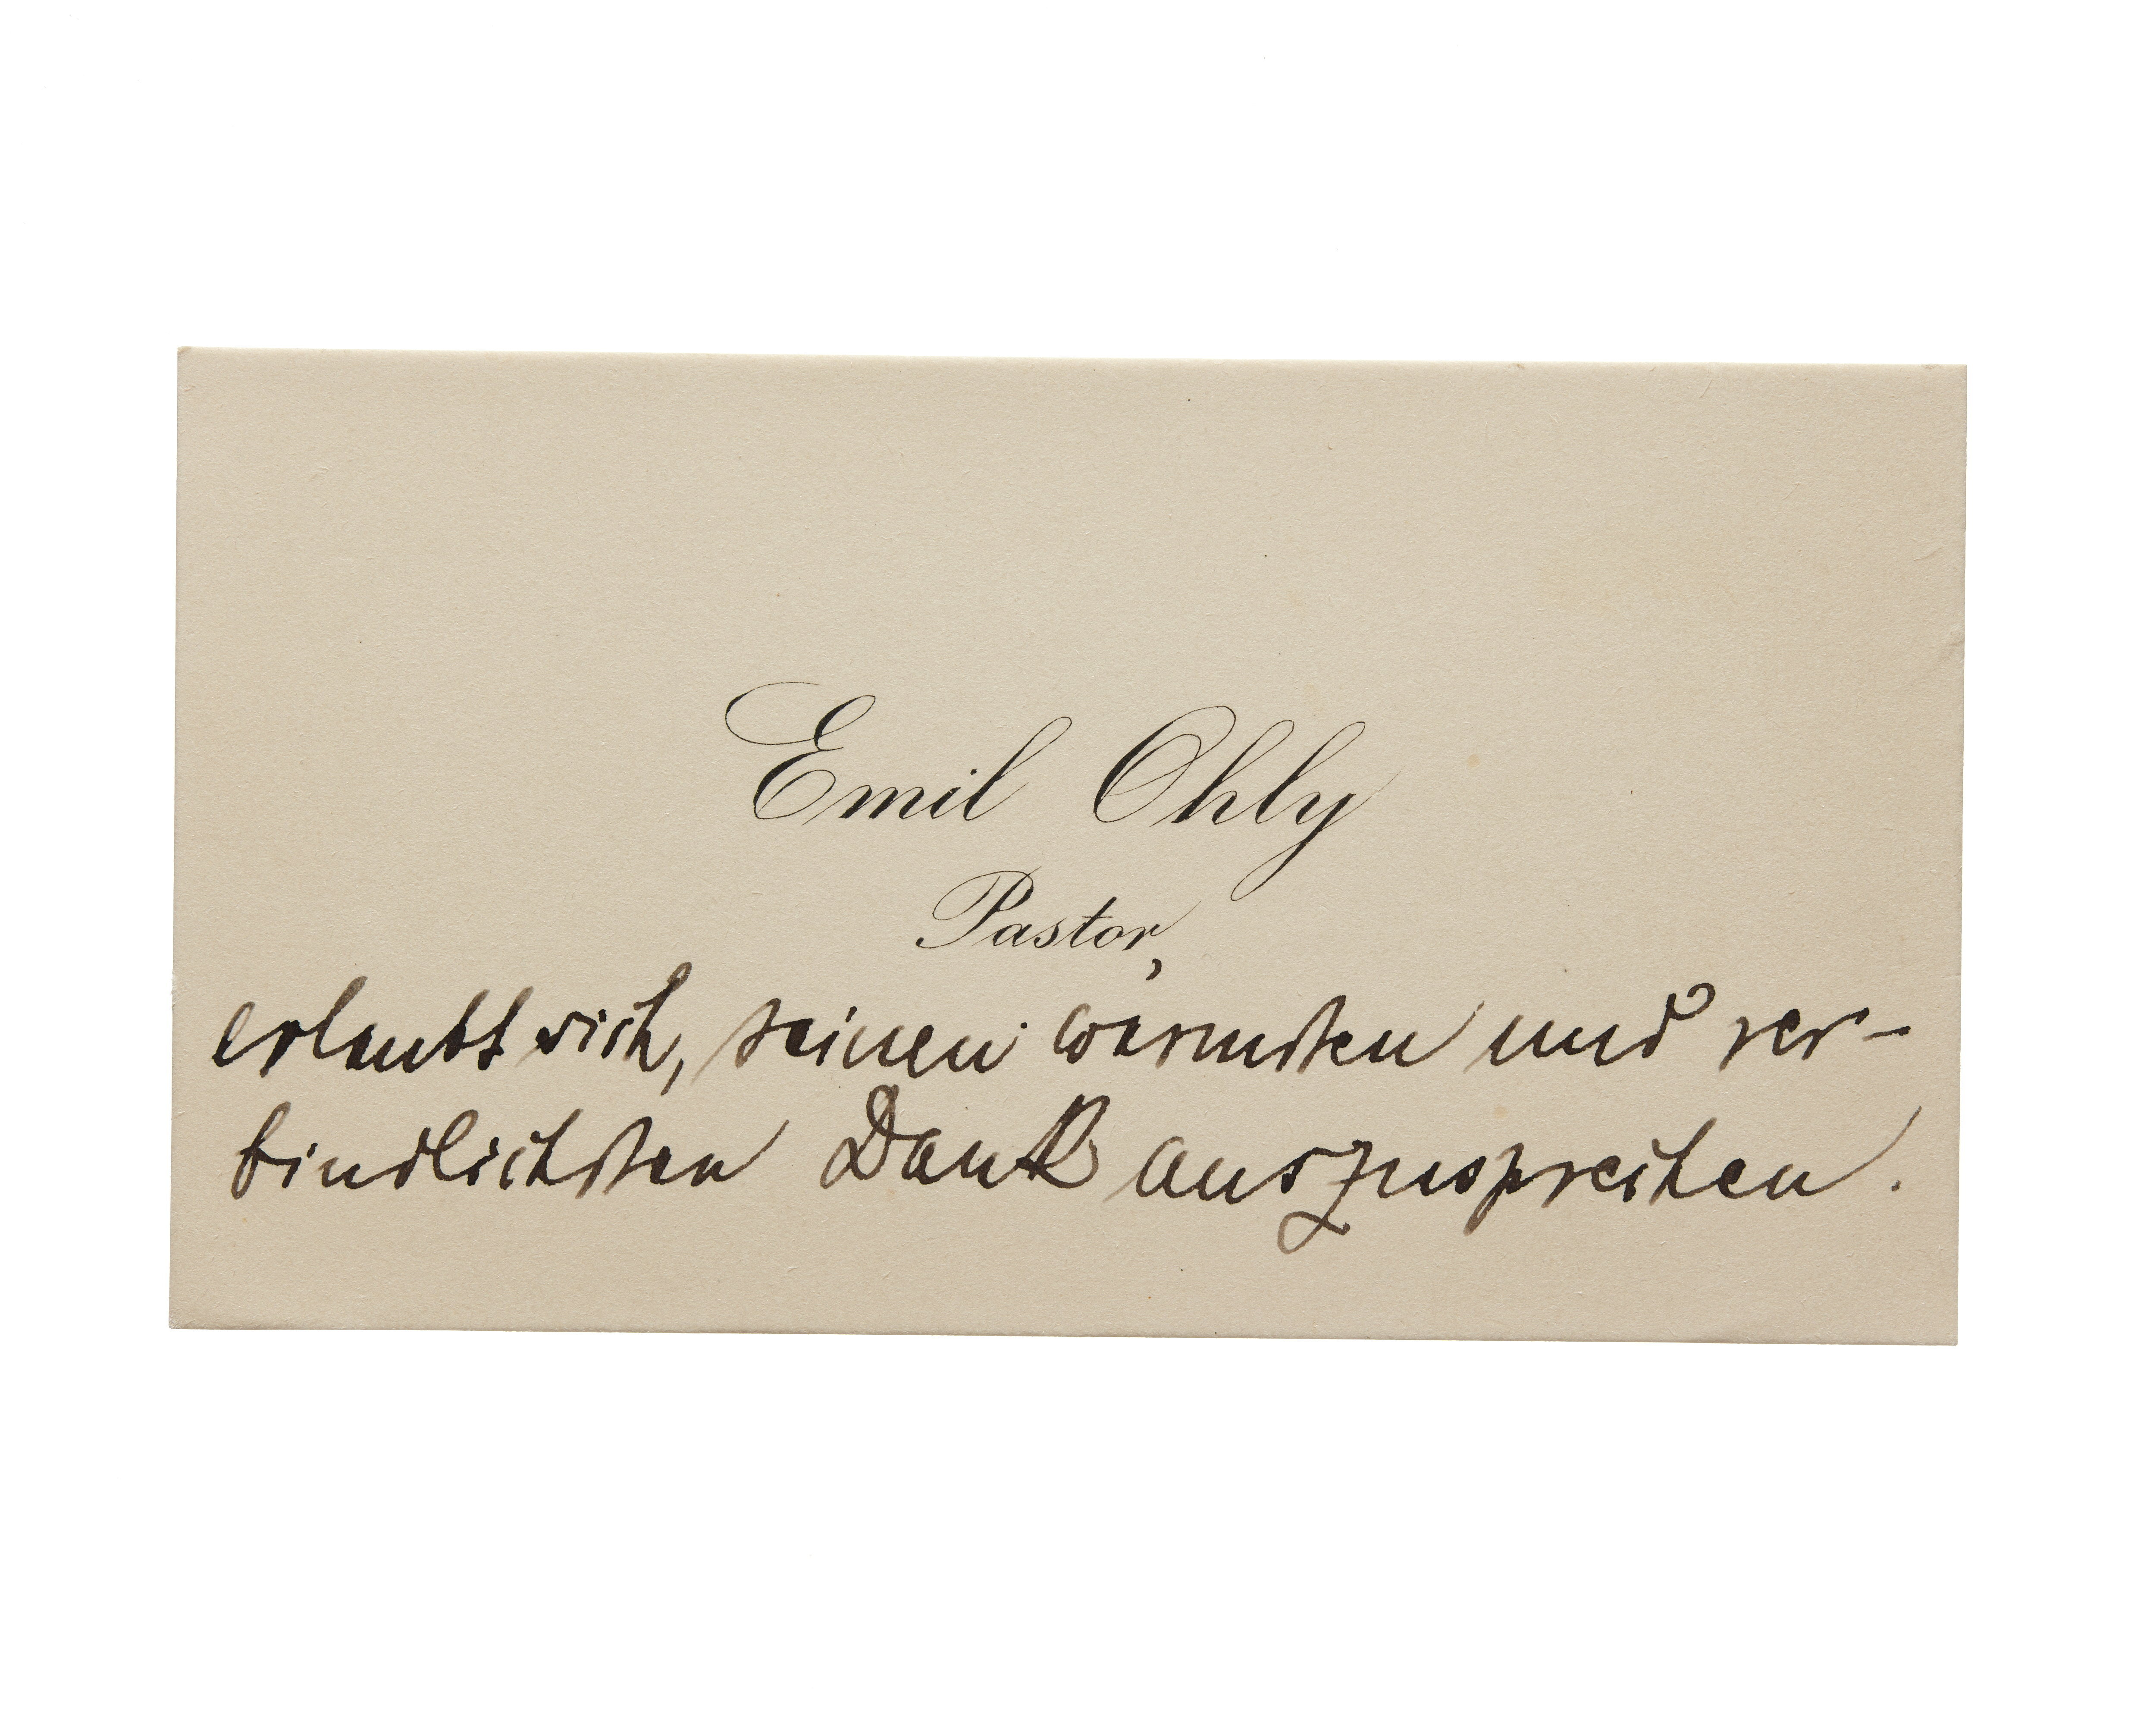 Emil Ohly
Pastor,
erlaubt sich, seinen warmsten und ver-
bindlichsten Dank auszusprechen.